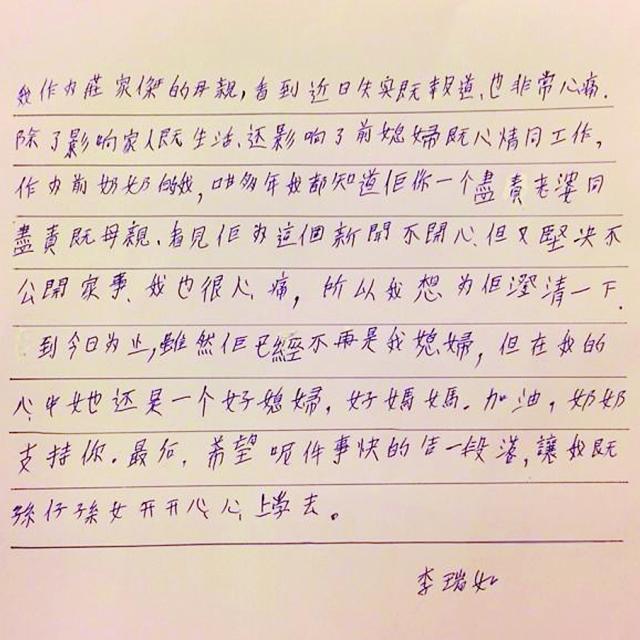 我作为莊家傑的母親，看到近日失实既報道、也非常心痛．
除了影响家人既生活、还影响了前媳婦既心情同工作，
作为前奶奶的我，咁多年我都知道佢係一个盡責老婆同
盡責既母親、看見佢为這個新聞不開心．但又堅决不
公開家事、我也很心痛，所以我想为佢澄清一下．
到今日为止，雖然佢已經不再是我媳婦，但在我的
心中她还是一个好媳婦，好媽媽．加油，奶奶
支持你．最后，希望呢件事快的告一段落，讓我既
孫仔孫女开开心心上學去。
李瑞如